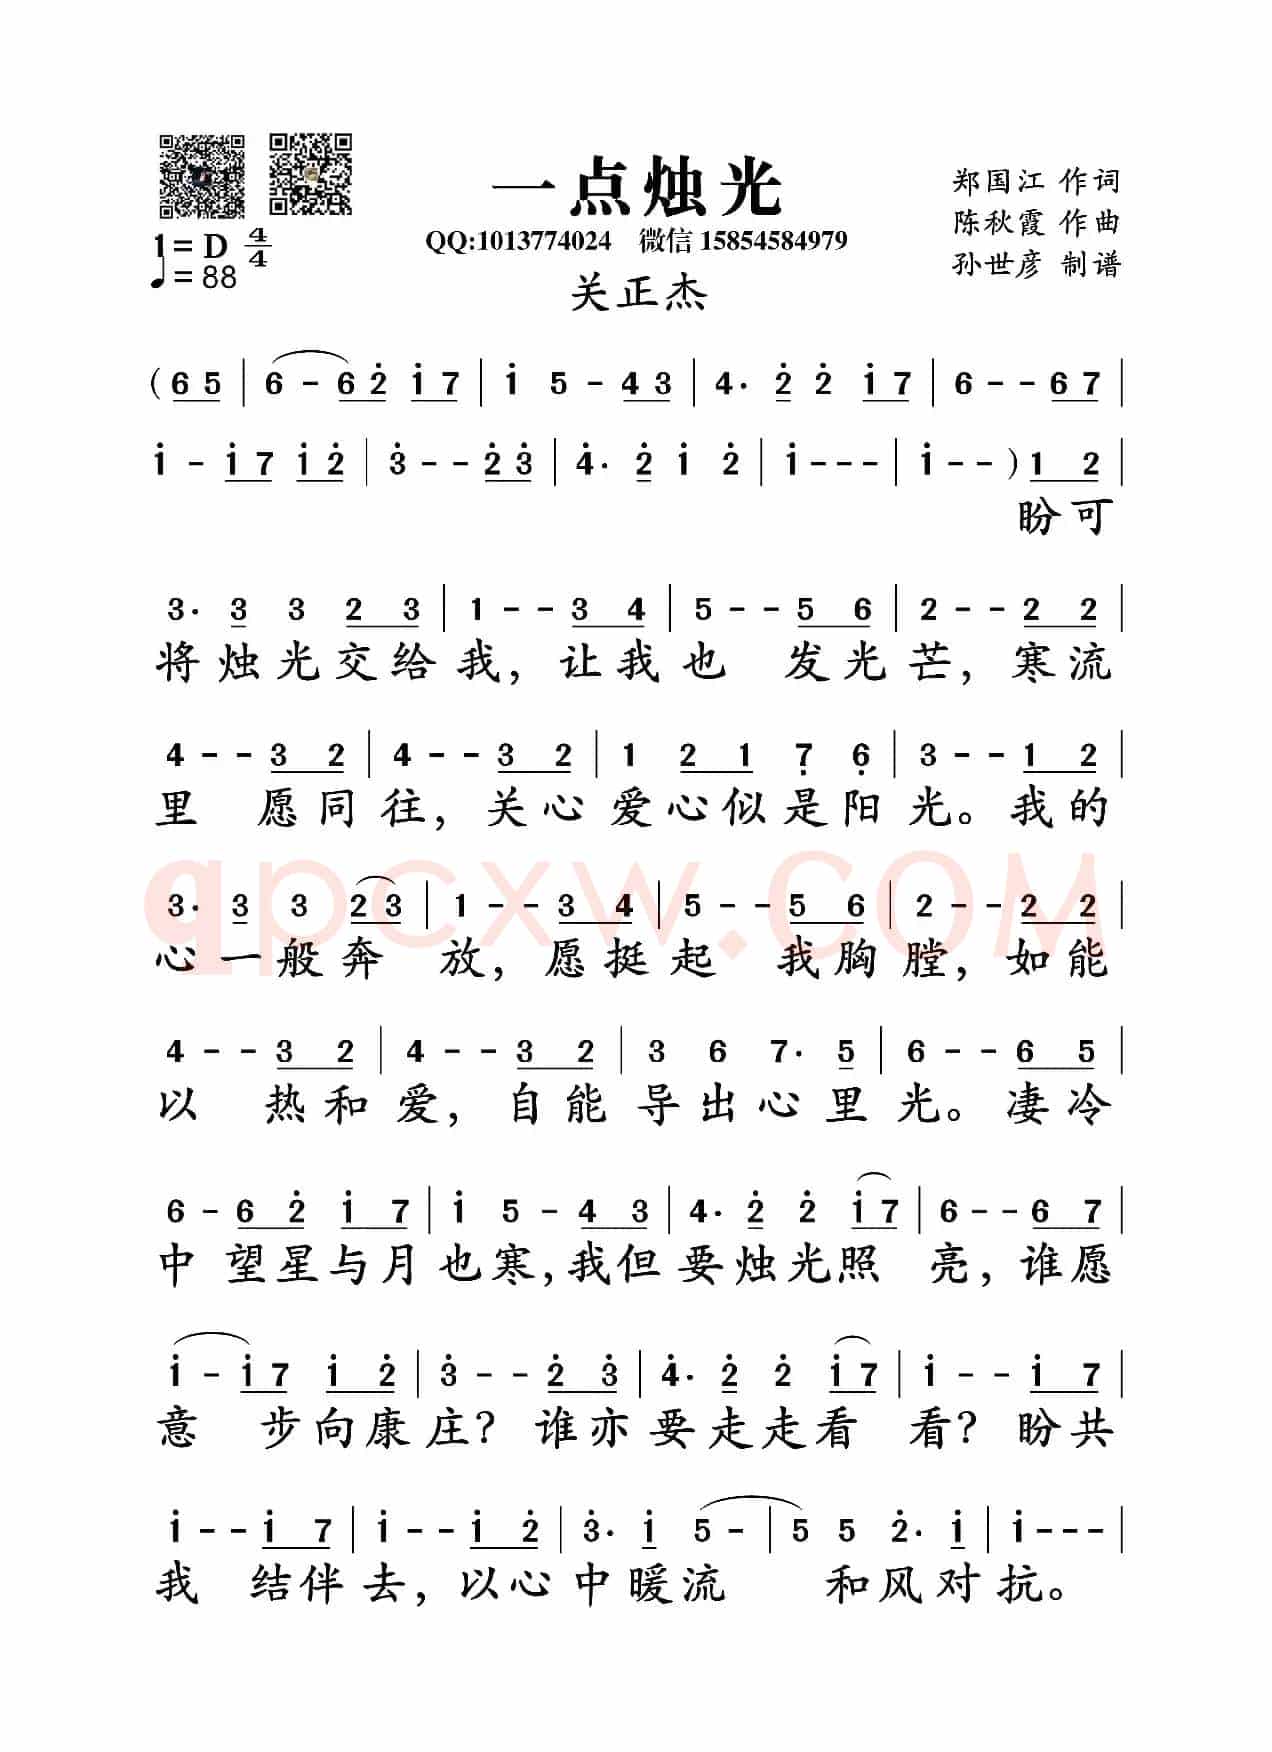 一点烛光
郑国江 作词
陈秋霞 作曲
孙世彦 制谱
QQ:1013774024 微信 15854584979
关正杰
1=D 4/4
♩=88
(6 5 | 6 - 6 2̇ 1̇ 7 | 1̇ 5 - 4 3 | 4· 2̇ 2̇ 1̇ 7 | 6 - - 6 7 |
1̇ - 1̇ 7 1̇ 2̇ | 3̇ - - 2̇ 3̇ | 4̇· 2̇ 1̇ 2̇ | 1̇ - - - | 1̇ - - ) 1 2 |
盼可
3· 3 3 2 3 | 1 - - 3 4 | 5 - - 5 6 | 2 - - 2 2 |
将烛光交给我，让我也 发光芒，寒流
4 - - 3 2 | 4 - - 3 2 | 1 2 1 7̣ 6̣ | 3 - - 1 2 |
里 愿同往，关心爱心似是阳光。我的
3· 3 3 2 3 | 1 - - 3 4 | 5 - - 5 6 | 2 - - 2 2 |
心一般奔 放，愿挺起 我胸膛，如能
4 - - 3 2 | 4 - - 3 2 | 3 6 7· 5 | 6 - - 6 5 |
以 热和爱，自能导出心里光。凄冷
6 - 6 2̇ 1̇ 7 | 1̇ 5 - 4 3 | 4· 2̇ 2̇ 1̇ 7 | 6 - - 6 7 |
中 望星与月也寒，我但要烛光照 亮，谁愿
1̇ - 1̇ 7 1̇ 2̇ | 3̇ - - 2̇ 3̇ | 4̇· 2̇ 2̇ 1̇ 7 | 1̇ - - 1̇ 7 |
意 步向康庄？谁亦要走走看 看？盼共
1̇ - - 1̇ 7 | 1̇ - - 1̇ 2̇ | 3̇· 1̇ 5 - | 5 5 2̇· 1̇ | 1̇ - - - |
我 结伴去，以心中暖流 和风对抗。
qpcxw.COM